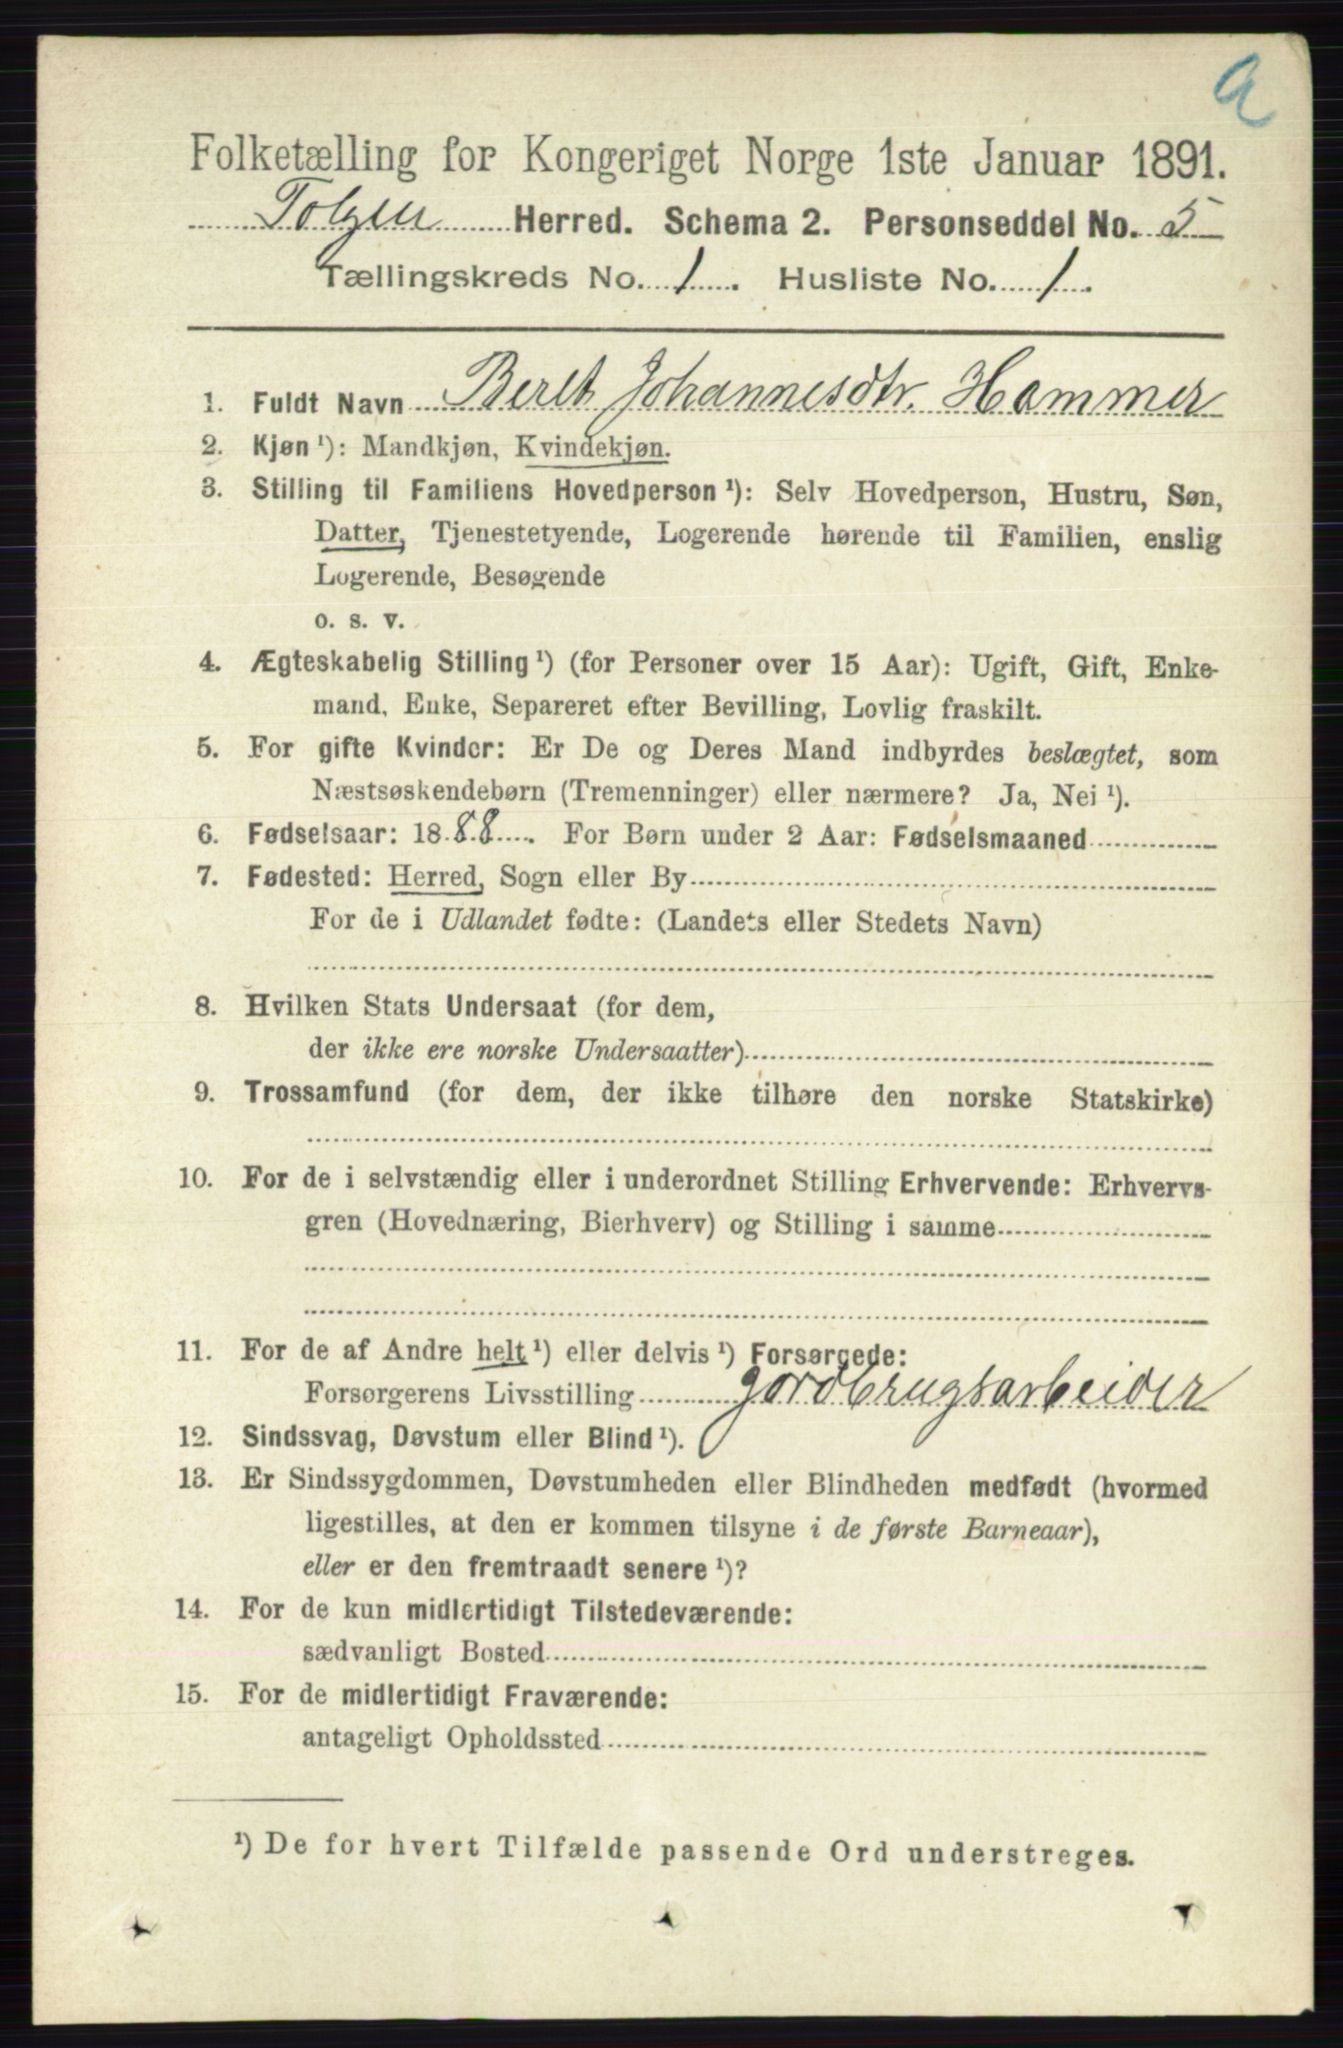 a
Folketælling for Kongeriget Norge 1ste Januar 1891.
Tolgen Herred. Schema 2. Personseddel No. 5
Tællingskreds No. 1. Husliste No. 1.
1. Fuldt Navn Beret Johannesdtr. Hammer
2. Kjøn ¹): Mandkjøn, Kvindekjøn.
3. Stilling til Familiens Hovedperson ¹): Selv Hovedperson, Hustru, Søn,
Datter, Tjenestetyende, Logerende hørende til Familien, enslig
Logerende, Besøgende
o. s. v.
4. Ægteskabelig Stilling ¹) (for Personer over 15 Aar): Ugift, Gift, Enke-
mand, Enke, Separeret efter Bevilling, Lovlig fraskilt.
5. For gifte Kvinder: Er De og Deres Mand indbyrdes beslægtet, som
Næstsøskendebørn (Tremenninger) eller nærmere? Ja, Nei ¹).
6. Fødselsaar: 1888. For Børn under 2 Aar: Fødselsmaaned
7. Fødested: Herred, Sogn eller By
For de i Udlandet fødte: (Landets eller Stedets Navn)
8. Hvilken Stats Undersaat (for dem,
der ikke ere norske Undersaatter)
9. Trossamfund (for dem, der ikke tilhøre den norske Statskirke)
10. For de i selvstændig eller i underordnet Stilling Erhvervende: Erhvervs-
gren (Hovednæring, Bierhverv) og Stilling i samme
11. For de af Andre helt ¹) eller delvis ¹) Forsørgede:
Forsørgerens Livsstilling gordbrugsarbeider
12. Sindssvag, Døvstum eller Blind ¹).
13. Er Sindssygdommen, Døvstumheden eller Blindheden medfødt (hvormed
ligestilles, at den er kommen tilsyne i de første Barneaar),
eller er den fremtraadt senere ¹)?
14. For de kun midlertidigt Tilstedeværende:
sædvanligt Bosted
15. For de midlertidigt Fraværende:
antageligt Opholdssted
¹) De for hvert Tilfælde passende Ord understreges.